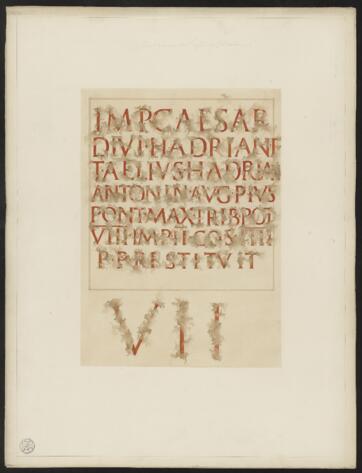 IMP CAESAR
DIVI HADRIANI F
T AELIVS HADRIAN
ANTONIN AVG PIVS
PONT MAX TRIB POT
VIIII IMP II COS IIII
P P RESTITVIT
VII